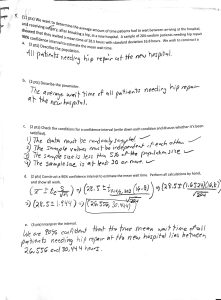 (15 pts) We want to determine the average amount of time patients had to wait between arriving at the hospital,
and receiving surgery, after breaking a hip, at a new hospital. A sample of 204 random patients needing hip repair
showed that they waited an average of 28.5 hours with standard deviation 16.8 hours. We wish to construct a
90% confidence interval to estimate the mean wait time.
a. (2 pts) Describe the population.
All patients needing hip repair at the new hospital.
b. (2 pts) Describe the parameter.
The average wait time of all patients needing hip repair
at the new hospital.
c. (2 pts) Check the conditions for a confidence interval (write down each condition and discuss whether it's been
satisfied).
1) The data must be randomly sampled ✓
2) The sample values must be independent of each other ✓
3) The sample size is less than 5% of the population size ✓
4) The sample size is at least 30 or more ✓
d. (6 pts) Construct a 90% confidence interval to estimate the mean wait time. Perform all calculations by hand,
and show all work.
⇒ (28.5 ± 1.944) ⇒ (26.556, 30.444)
e. (3 pts) Interpret the interval.
We are 90% confident that the true mean wait time of all
patients needing hip repair at the new hospital lies between
26.556 and 30.444 hours.